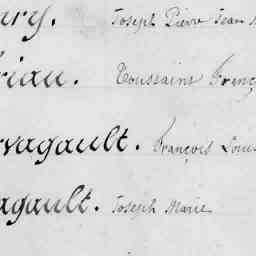 ary. Joseph Pierre Jean
riau. Toussaint Franç
rvagault. François Loui
agault. Joseph Marie